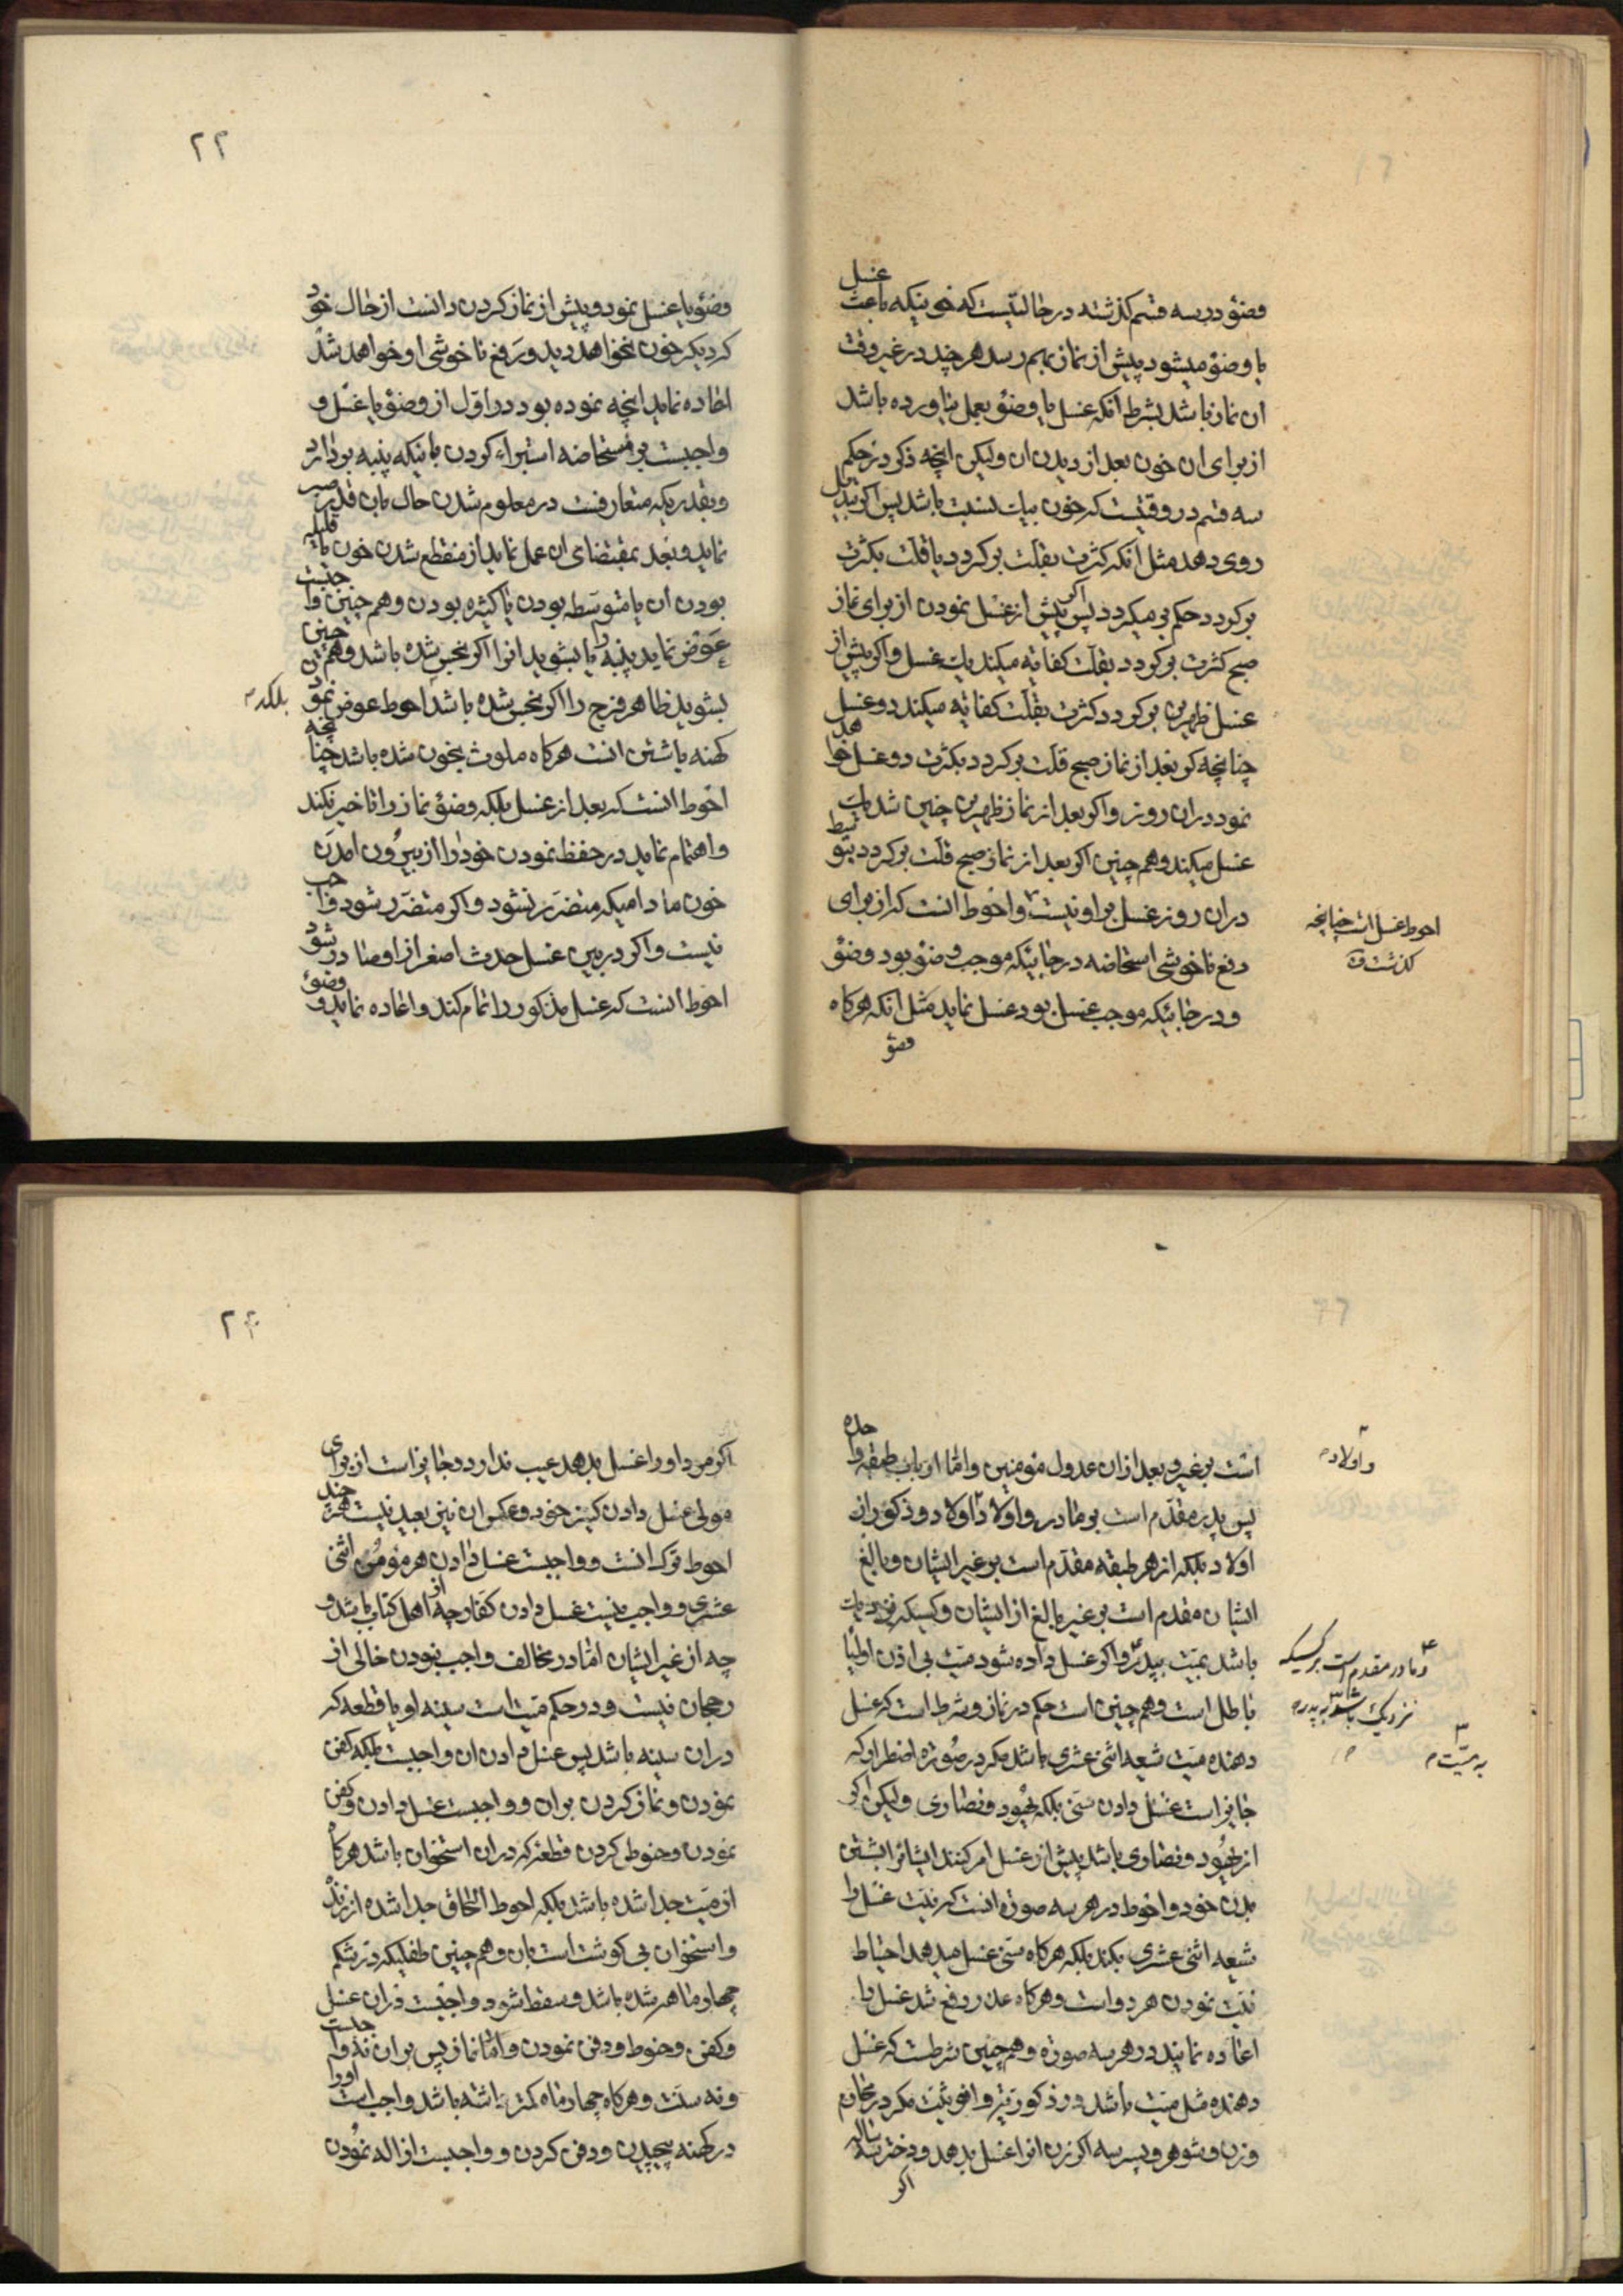 غسل
وضوء در سه قسم كذشته در حالتيست كه خونيكه باعث
يا وضوء ميشود پيش از نماز بهم رسد هر چند در غير وقت
ان نماز باشد بشرط انكه غسل يا وضوء بعمل نياورده باشد
از براى ان خون بعد از ديدن ان وليكن انچه ذكر در حكم
سه قسم در وقتيست كه خون بيك نسبت باشد پس اكر تبديل
روى دهد مثل انكه كثرت بقلت بركردد يا قلت بكثرت
بركردد حكم بر ميكردد پس اكر پيش از غسل نمودن از براى نماز
صبح كثرت بركردد بقلت كفايه ميكند يك غسل و اكر پيش از
غسل ظهرين بركردد كثرت بقلت كفايه ميكند دو غسل
چنانچه كر بعد از نماز صبح قلت بركردد بكثرت دو غسل خواهد
نمود دران روز و اكر بعد از نماز ظهرين چنين شد يك
غسل ميكند و هم چنين اكر بعد از نماز صبح قلت بركردد بتوسط
دران روز غسل بر او نيست و احوط انست كه از براى
احوط غسل است چنانچه
كذشت
رفع ناخوشى استحاضه در جائيكه موجب وضوء بود وضوء
و در جائيكه موجب غسل بود غسل نمايد مثل انكه هركاه
وضوء
٢٢
وضوء يا غسل نمود و پيش از نماز كردن دانست از حال خود
كه ديكر خون نخواهد ديد و رفع ناخوشى او خواهد شد
اعاده نمايد انچه نموده بود در اول از وضوء يا غسل و
واجبست بر مستحاضه استبراء كردن باينكه پنبه بردارد
و بقدريكه متعارفست در معلوم شدن حال بان قدر صبر
نمايد و بعد بمقتضاى ان عمل نمايد از منقطع شدن خون يا قليله
بودن ان يا متوسطه بودن يا كثيره بودن و هم چنين واجبست
عوض نمايد پنبه را يا بشويد انرا اكر نجس شده باشد و هم چنين
بشويد ظاهر فرج را اكر نجس شده باشد احوط عوض نمودن
بلكه
كهنه يا شستن انست هركاه ملوث بخون شده باشد چنانچه
احوط انست كه بعد از غسل بلكه وضوء نماز را تاخير نكند
و اهتمام نمايد در حفظ نمودن خود را از بيرون امدن
خون ماداميكه متضرر نشود و اكر متضرر شود واجب
نيست و اكر در بين غسل حدث اصغر از او صادر شود
احوط انست كه غسل مذكور را تمام كند و اعاده نمايد و وضوء
است بر غير و بعد ازان عدول مؤمنين و اما ارباب طبقه واحده
و اولاد
پس پدر مقدم است بر مادر و اولاد اولاد و ذكور از
اولاد بلكه از هر طبقه مقدم است بر غير ايشان و بالغ
ايشان مقدم است بر غير بالغ از ايشان و كسيكه نزديك
باشد بميت بپدر و اكر غسل داده شود ميت بى اذن اوليا
و مادر مقدم است بر كسيكه
نزديك باشد به پدر
به ميت
باطل است و هم چنين است حكم در نماز و شرط است كه غسل
دهنده ميت شيعه اثنى عشرى باشد مكر در صورة اضطرار كه
جايز است غسل دادن سنى بلكه يهود و نصارى وليكن اكر
از يهود و نصارى باشد پيش از غسل امر كنند ايشانرا بشستن
بدن خود و احوط در هر سه صورة انست كه نيت غسل را
شيعه اثنى عشرى بكند بلكه هركاه سنى غسل ميدهد احتياط
نيت نمودن هر دو است و هركاه عذر رفع شد غسل را
اعاده نمايند در هر سه صورة و هم چنين شرطست كه غسل
دهنده مثل ميت باشد در ذكوريت و انوثيت مكر در محارم
و زن و شوهر و پسر سه ساله اكر زن انرا غسل بدهد و دختر سه ساله
اكر
٢٣
اكر مرد او را غسل بدهد عيب ندارد و جايز است از براى
مولى غسل دادن كنيز خود و عكس ان نيز بعيد نيست هر چند
احوط ترك انست و واجبست غسل دادن هر مؤمن اثنى
عشرى و واجب نيست غسل دادن كفار چه از اهل كتاب باشد و
چه از غير ايشان اما در مخالف واجب نبودن خالى از
رجحان نيست و در حكم ميت است سينه او يا قطعه كه
دران سينه باشد پس غسل دادن ان واجبست بلكه كفن
نمودن و نماز كردن بران و واجبست غسل دادن و كفن
نمودن و حنوط كردن قطعه كه دران استخوان باشد هركاه
از ميت جدا شده باشد بلكه احوط الحاق جدا شده از زنده
و استخوان بى كوشت است بان و هم چنين طفليكه در شكم
چهار ماهه شده باشد و سقط شود واجبست دران غسل
و كفن و حنوط و دفن نمودن و اما نماز پس بران نه واجبست
و نه سنت و هركاه چهار ماه كمتر داشته باشد واجب است او را
در كهنه پيچيدن و دفن كردن و واجبست ازاله نمودن